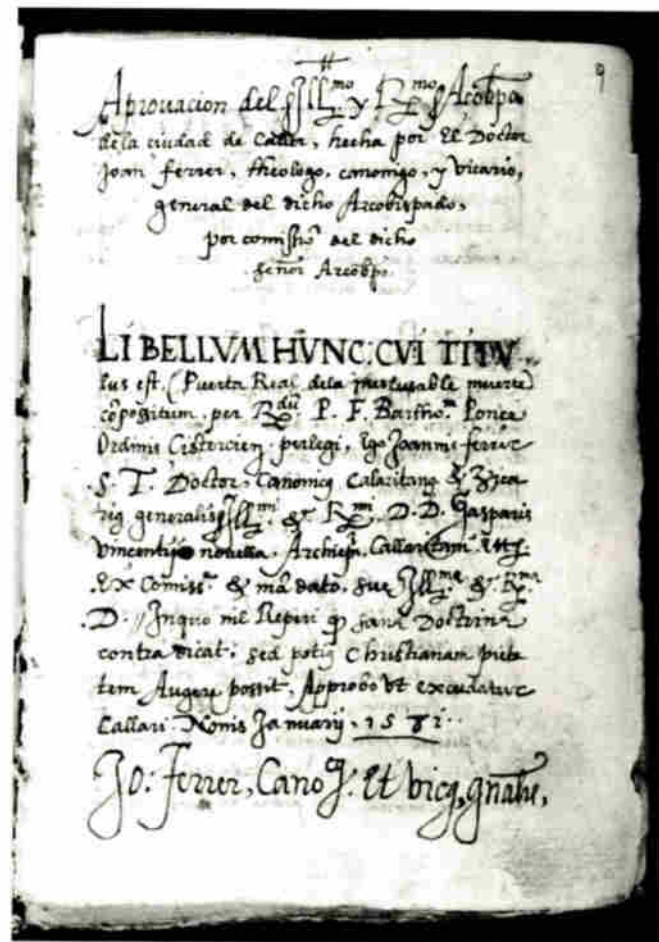 9
Aprouacion del SIll.mo y R.mo S Acobpo
dela ciudad de Caller, hecha por El Doctor
Joan ferrer, theologo, canonigo, y Vicario,
general del dicho Arcobispado,
por comissiō del dicho
señor Arcobpo.
LIBELLVM HVNC; CVI TITV
lus est, (Puerta Real dela inexcusable muerte)
cōpossitum, per R.du P. F. Bartho.m Ponce
Ordinis Cistercien̄, perlegi, Ego Joannes ferrer
S. T. Doctor, Canonicꝰ Calaritanꝰ & Vica
riꝰ generalis Ill.mi & R.mi D. D. Gasparis
Vincentij novella, Archiep̄i, Callaritani
Ex Comiss.e & mādato, sue Ill.me & R.me
D. // Inquo nil Reperi q̄ sana Doctrina
contra dicat; sed potiꝰ Christianam pieta
tem Augere possit, Approbo Vt excudatur
Callari Nonis Januarij, 1581.
Jo: Ferrer, Canoꝰ: Et vicꝰ, gn̄alis,